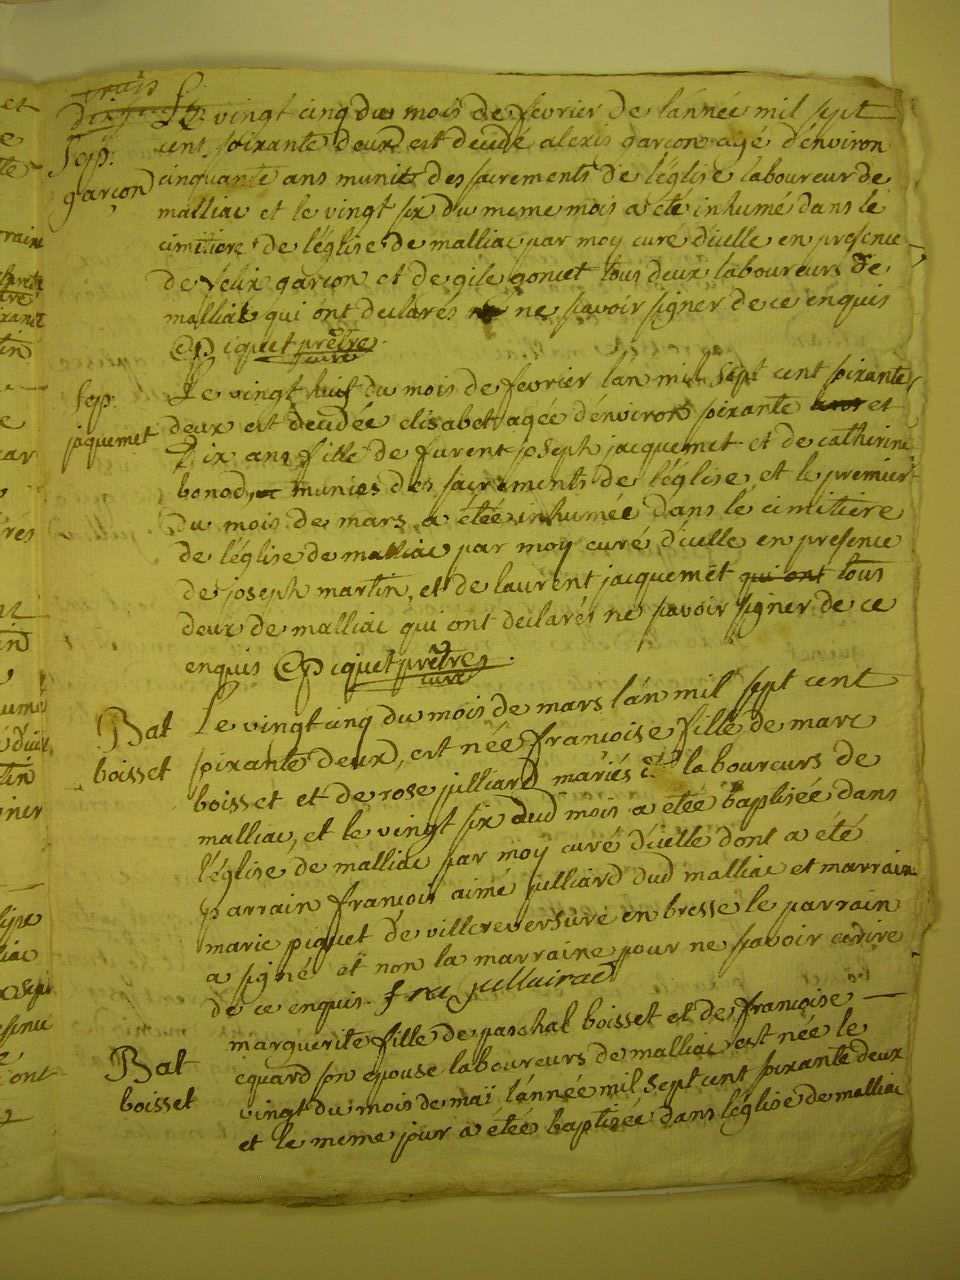 trois
Sep.
garçon
Le vingt cinq du mois de fevrier de l'année mil sept
cent soixante deux est decedé alexis garçon agé d'environ
cinquante ans munit des sacrements de l'église laboureur de
malliac et le vingt six du meme mois a été inhumé dans lé
cimitiere de l'église de malliac par moy curé d'icelle en presence
de felix garçon et de gile goncet tous deux laboureurs de
malliac qui ont declarés ne savoir signer de ce enquis
Piquet prêtre
curé
Sep.
jaquemet
Le vingt huit du mois de fevrier l'an mil sept cent soixante
deux est decedée elisabet agée d'environ soixante et
dix ans fille de furent joseph jacquemet et de catherine
bonod, munies des sacrements de l'église, et le premier
du mois de mars a étée inhumée dans lé cimitiere
de l'église de malliac par moy curé d'icelle en presence
de joseph martin, et de laurent jacquemet qui ont tous
deux de malliac qui ont declarés ne savoir signer de ce
enquis Piquet prêtre
curé
Bat
boisset
Le vingt cinq du mois de mars l'an mil sept cent
soixante deux, est née francoise fille de marc
boisset et de rose julliard mariés et laboureurs de
malliac, et le vingt six dud mois a étée baptisée dans
l'église de malliac par moy curé d'icelle dont a été
parrain francois aimé julliard dud malliac et marraine
marie piquet de villereversure en bresse le parrain
a signé et non la marraine pour ne savoir ecrire
de ce enquis.
Bat
boisset
marguerite fille de paschal boisset et de françoise
equard son epouse laboureurs de malliac est née le
vingt du mois de maï l'année mil sept cent soixante deux
et le meme jour a étée baptisée dans l'église de malliac